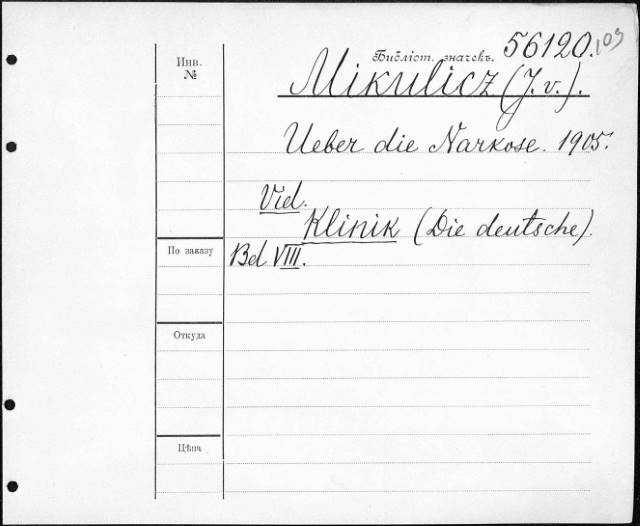 Инв.
№
Библіот. значекъ. 56120. 109
Mikulicz (J. v.).
Ueber die Narkose. 1905.
Vid.
Klinik (Die deutsche).
По заказу
Bd VIII.
Откуда
Цѣна